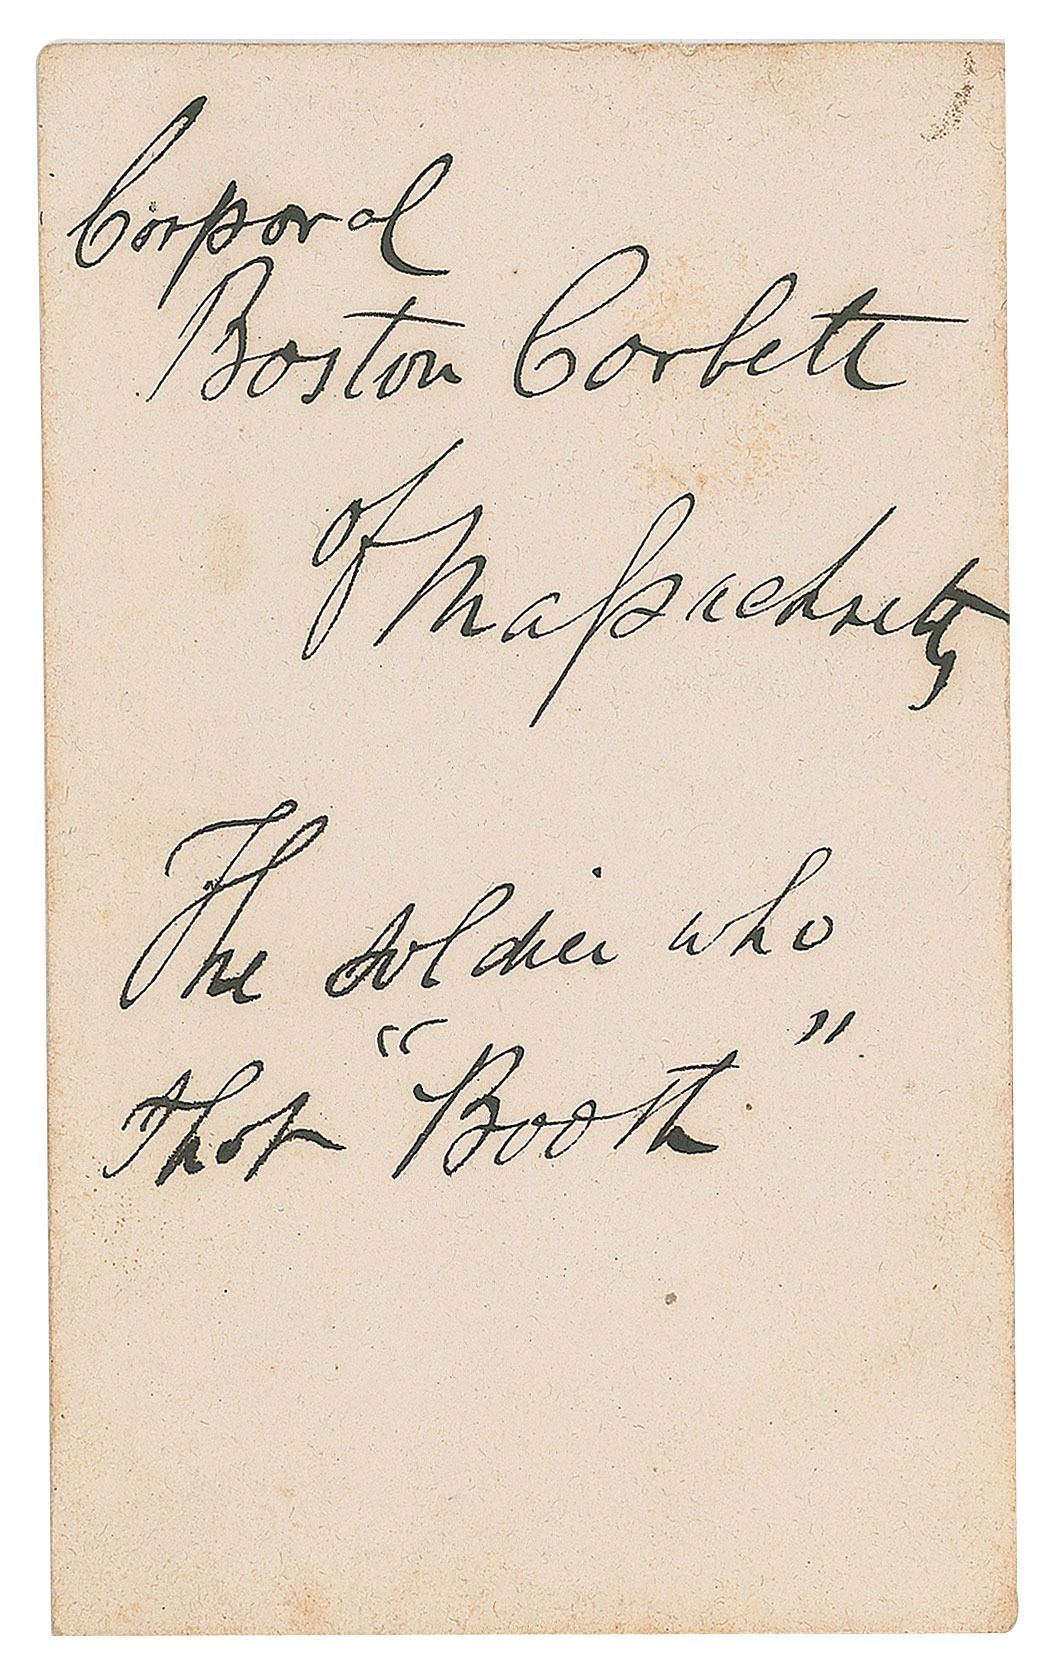 Corporal
Boston Corbett
of Maſsachusetts
The soldier who
shot "Booth"